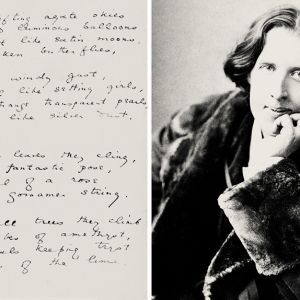 agate skies
luminous balloons
like satin moons,
butterflies,
windy gust,
like girls,
transparent pearls
like silver dust.
leaves they cling,
fantastic pose,
of a rose
gossamer string.
trees they climb
of amethyst,
keeping tryst
of the lime.